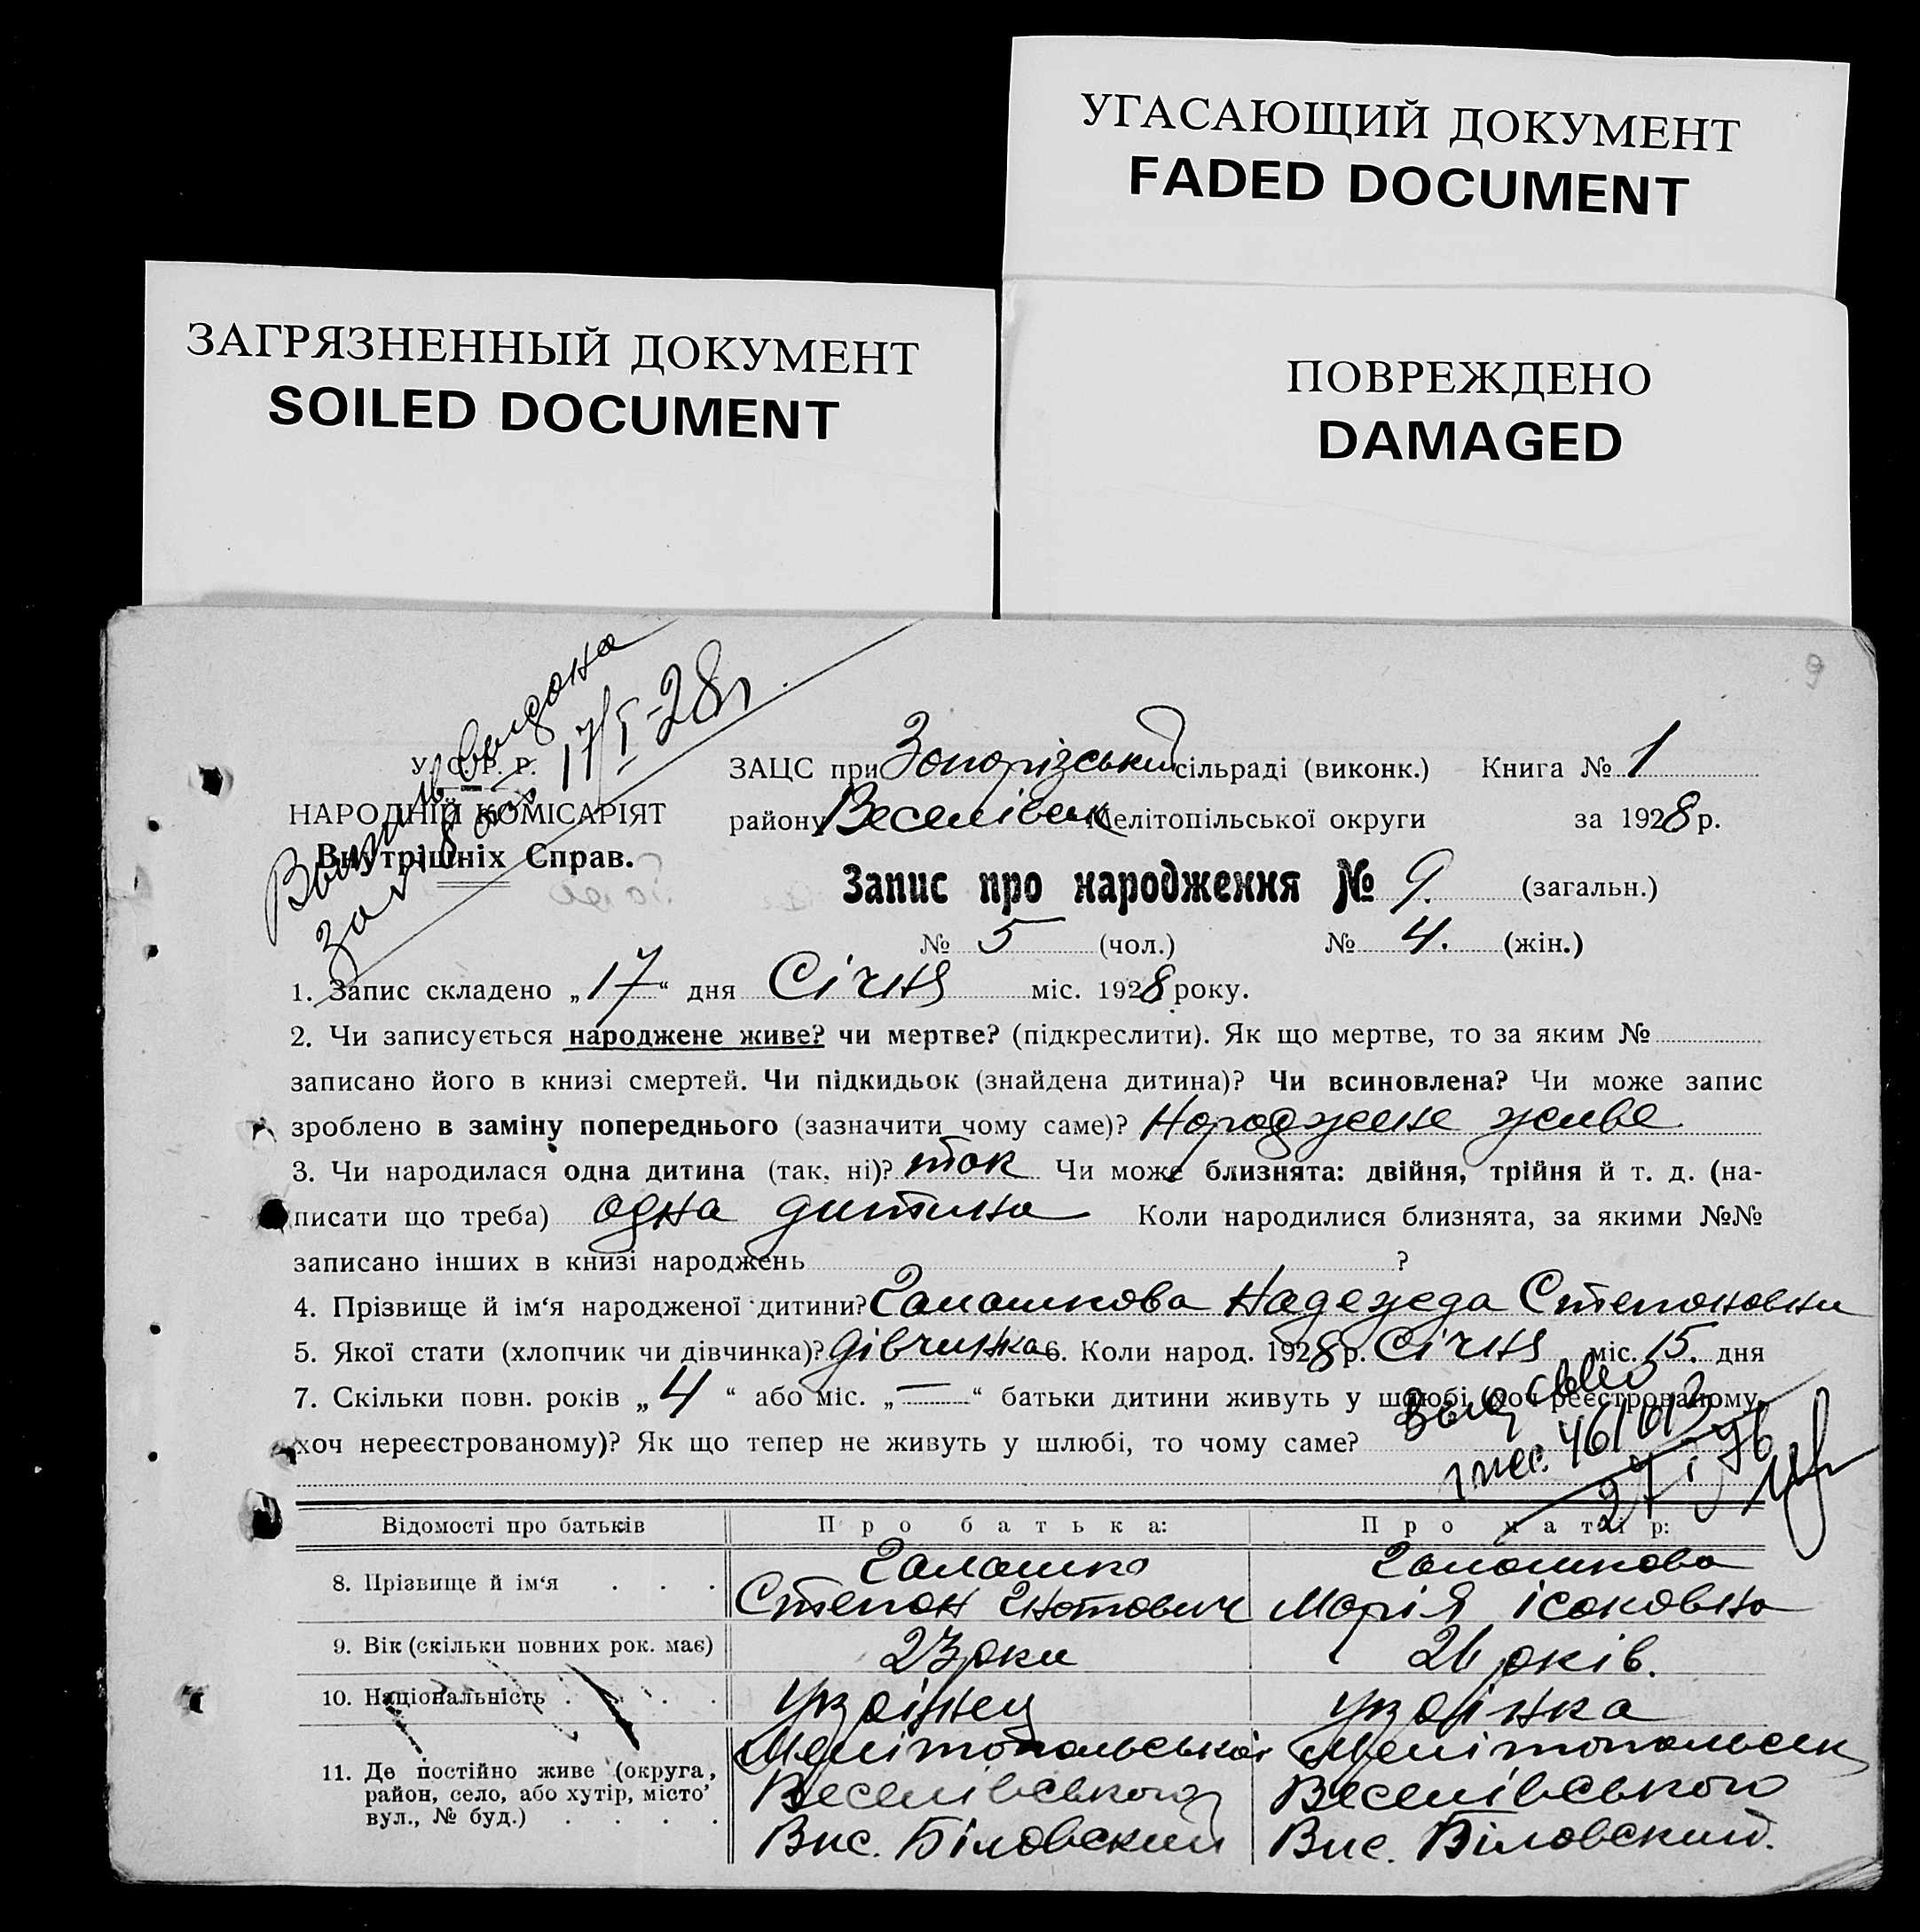 УГАСАЮЩИЙ ДОКУМЕНТ
FADED DOCUMENT
ЗАГРЯЗНЕННЫЙ ДОКУМЕНТ
SOILED DOCUMENT
ПОВРЕЖДЕНО
DAMAGED
9
Выпись выдана
за № 8 17/I-28 г.
У. С. Р. Р.
НАРОДНІЙ КОМІСАРІЯТ
Внутрішніх Справ.
ЗАЦС при Запорізський сільраді (виконк.) Книга № 1
району Веселівськ Мелітопільської округи за 1928 р.
Запис про народження № 9. (загальн.)
№ 5 (чол.) № 4. (жін.)
1. Запис складено „17“ дня Січня міс. 1928 року.
2. Чи записується народжене живе? чи мертве? (підкреслити). Як що мертве, то за яким №
записано його в книзі смертей. Чи підкидьок (знайдена дитина)? Чи всиновлена? Чи може запис
зроблено в заміну попереднього (зазначити чому саме)? Народжене живе
3. Чи народилася одна дитина (так, ні)? так Чи може близнята: двійня, трійня й т. д. (на-
писати що треба) одна дитина Коли народилися близнята, за якими №№
записано інших в книзі народжень ?
4. Прізвище й ім‘я народженої дитини? Галашкова Надежда Степановни
5. Якої стати (хлопчик чи дівчинка)? дівчинка 6. Коли народ. 1928 р. Січня міс. 15. дня
7. Скільки повн. років „4“ або міс. „—“ батьки дитини живуть у шлюбі (хоч реєстрованому,
хоч нереєстрованому)? Як що тепер не живуть у шлюбі, то чому саме?
Відомості про батьків Про батька: Про матір:
8. Прізвище й ім‘я . . . Галашко Галашкова
Степан Гнатович Марія Ісаковна
9. Вік (скільки повних рок. має) 23 роки 26 років.
10. Національність . . . . Українец Українка
11. Де постійно живе (округа, район, село, або хутір, місто, вул., № буд.) . . . . Мелітопольської Мелітопольськ
Веселівського Веселівського
Вис. Біловский Вис. Біловский.